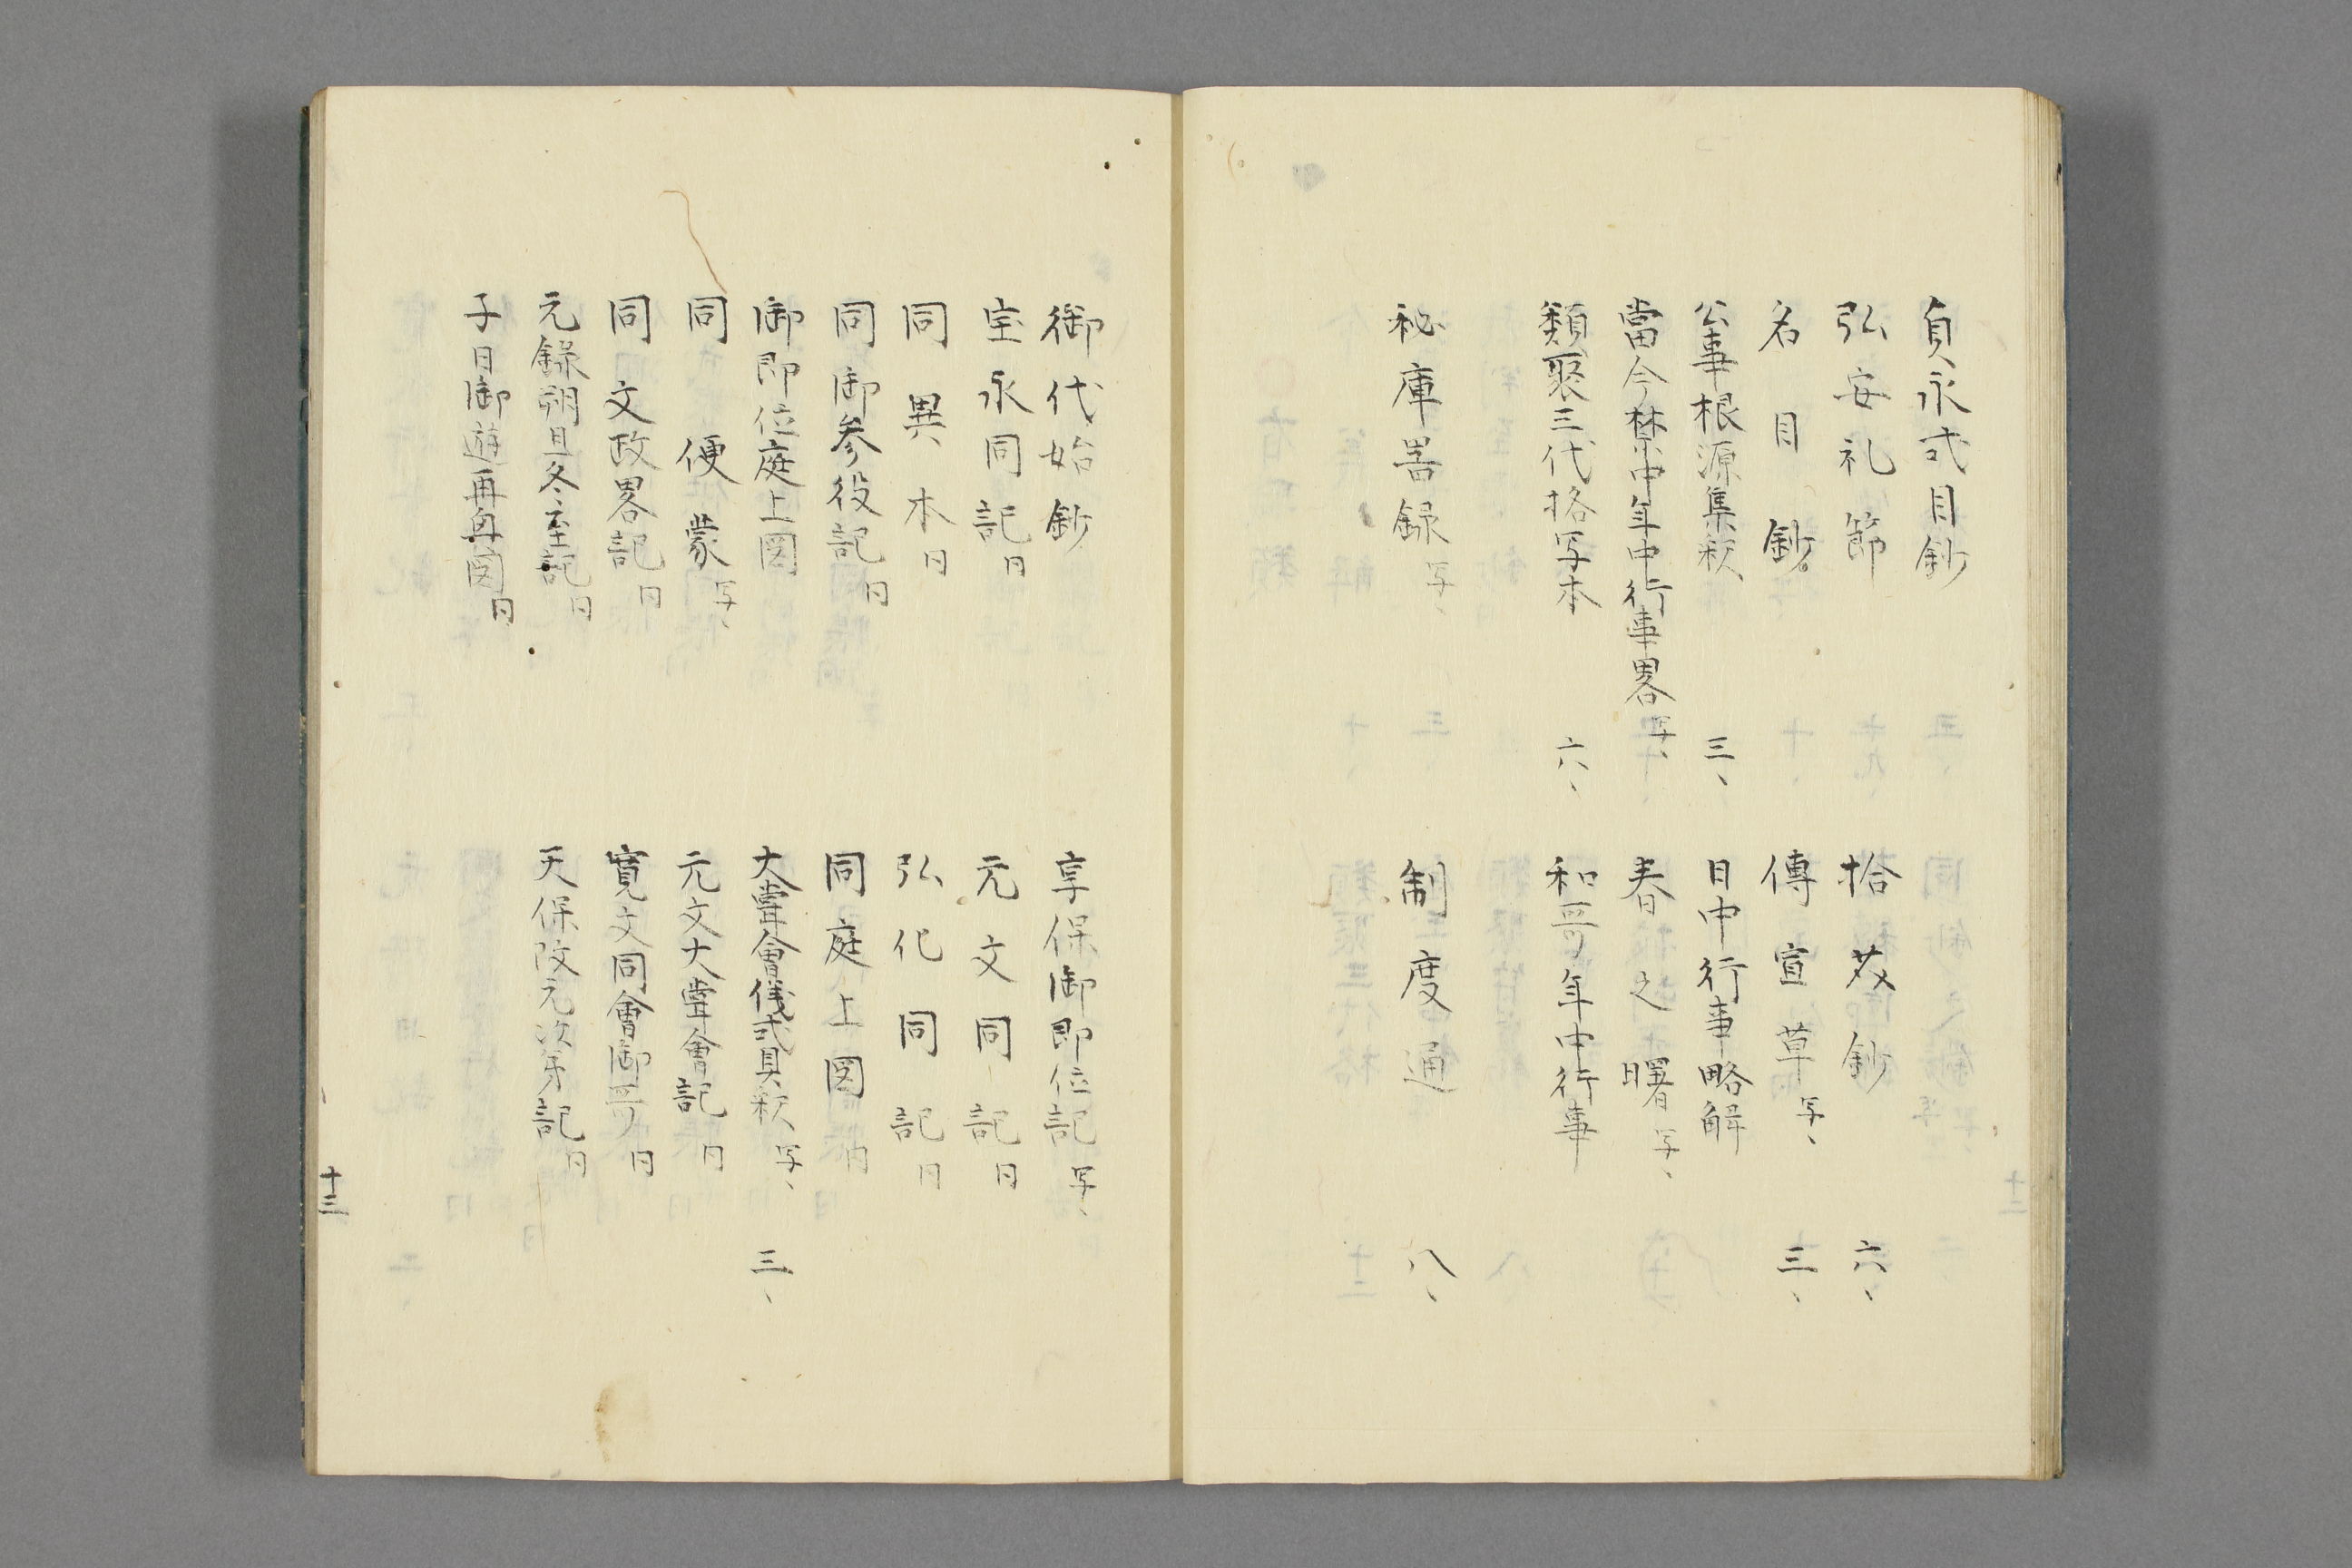 貞永式目鈔
弘安礼節
拾芥鈔 六、
名目鈔
傳宣草 写、 三、
公事根源集釈 三、
日中行事略解
當今禁中年中行事畧 写、
春之曙 写、
類聚三代格写本 六、
和哥年中行事
秘庫書録 写、
制度通 八、
御代始鈔
享保御即位記 写、
宝永同記 同
元文同記 同
同異本 同
弘化同記 同
同御参役記 同
同庭上図 同
御即位庭上図
大嘗會儀式具釈 写、 三、
同便蒙 写、
元文大嘗會記 同
同文政畧記 同
寛文同會御哥 同
元録朔旦冬至記 同
天保改元次第記 同
子日御遊再興図 同
十三